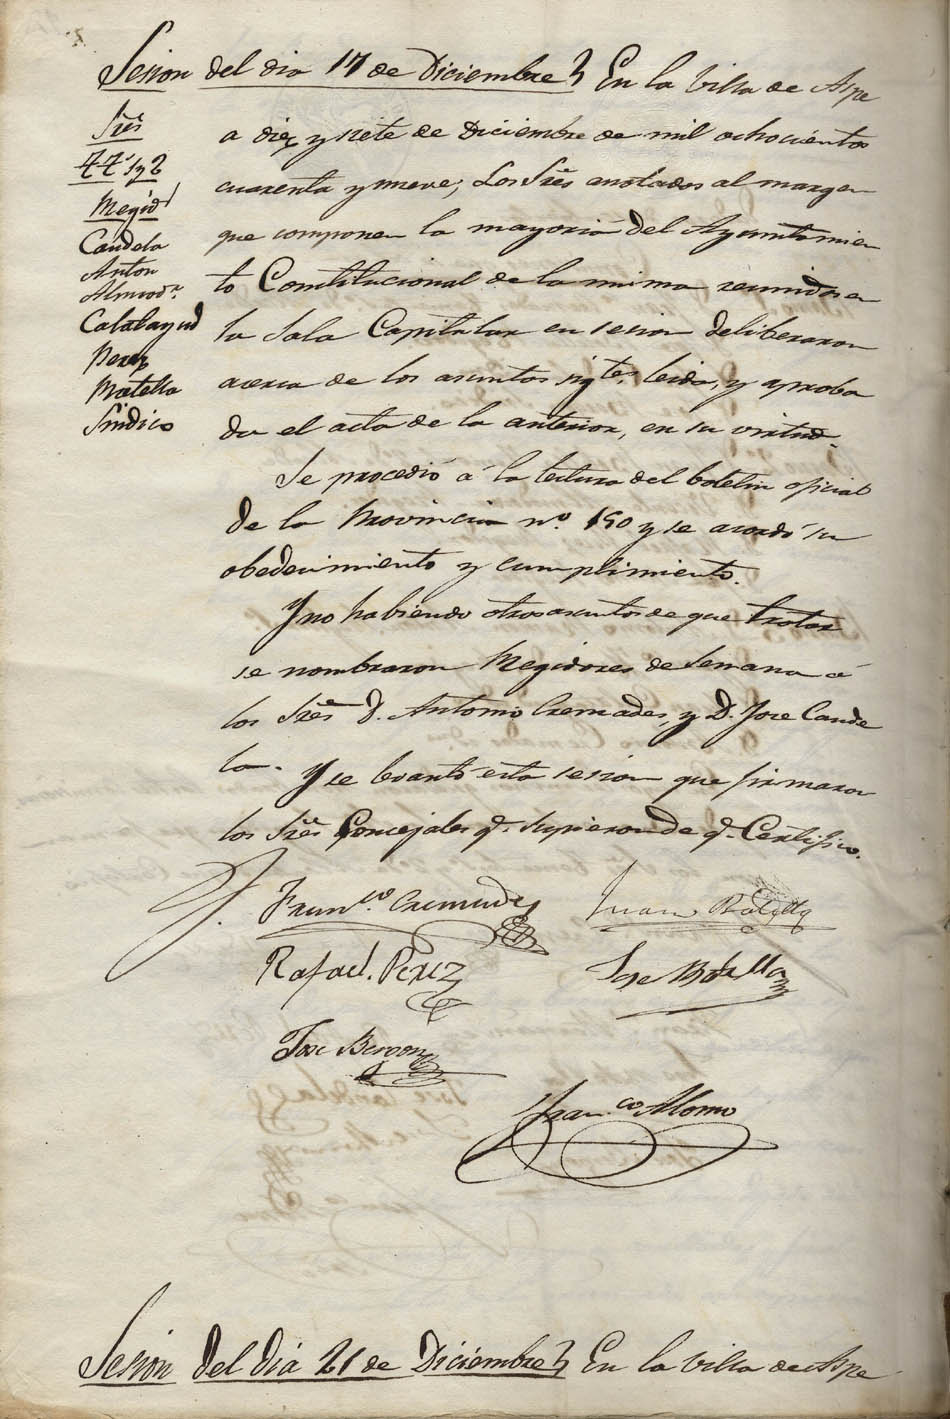 Sesion del dia 17 de Diciembre } En la Villa de Aspe
Sres
TT. 1 y 2
Regid.
Candela
Anton
Almod.r
Calatayud
Perez
Botella
Sindico
a diez y siete de Diciembre de mil ochocientos
cuarenta y nueve; Los Sres anotados al margen
que componen la mayoria del Ayuntamien
to Constitucional de la misma reunidos en
la Sala Capitular en sesion deliberaron
acerca de los asuntos sigtes, leida, y aproba
da el acta de la anterior, en su virtud.
Se procedió á la lectura del boletin oficial
de la Provincia nº. 150 y se acordó su
obedecimiento y cumplimiento.
Y no habiendo otros asuntos de que tratar
se nombraron Regidores de Semana á
los Sres D. Antonio Cremades, y D. Jose Cande
la. Y se levantó esta sesion que firmaron
los Sres Concejales q. supieron de q. Certifico.
Franco. Cremades
Juan Botella
Rafael. Perez
Jose Botella
Jose
Fran.co Alonso
Sesion del dia 21 de Diciembre } En la Villa de Aspe